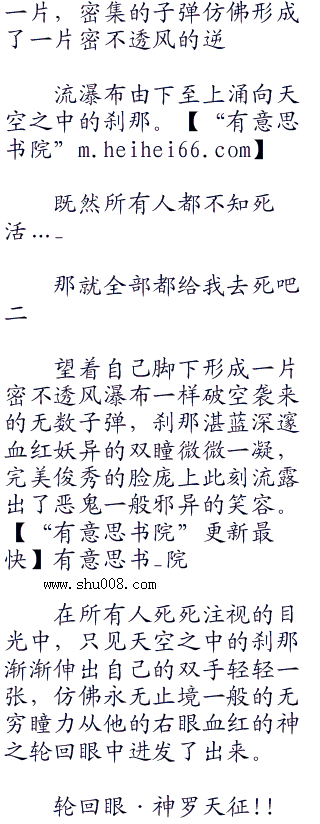 一片，密集的子弹仿佛形成
了一片密不透风的逆
流瀑布由下至上涌向天
空之中的刹那。【“有意思
书院”m.heihei66.com】
既然所有人都不知死
活…_
那就全部都给我去死吧
二
望着自己脚下形成一片
密不透风瀑布一样破空袭来
的无数子弹，刹那湛蓝深邃
血红妖异的双瞳微微一凝，
完美俊秀的脸庞上此刻流露
出了恶鬼一般邪异的笑容。
【“有意思书院”更新最
快】有意思书_院
www.shu008.com
在所有人死死注视的目
光中，只见天空之中的刹那
渐渐伸出自己的双手轻轻一
张，仿佛永无止境一般的无
穷瞳力从他的右眼血红的神
之轮回眼中迸发了出来。
轮回眼·神罗天征!!